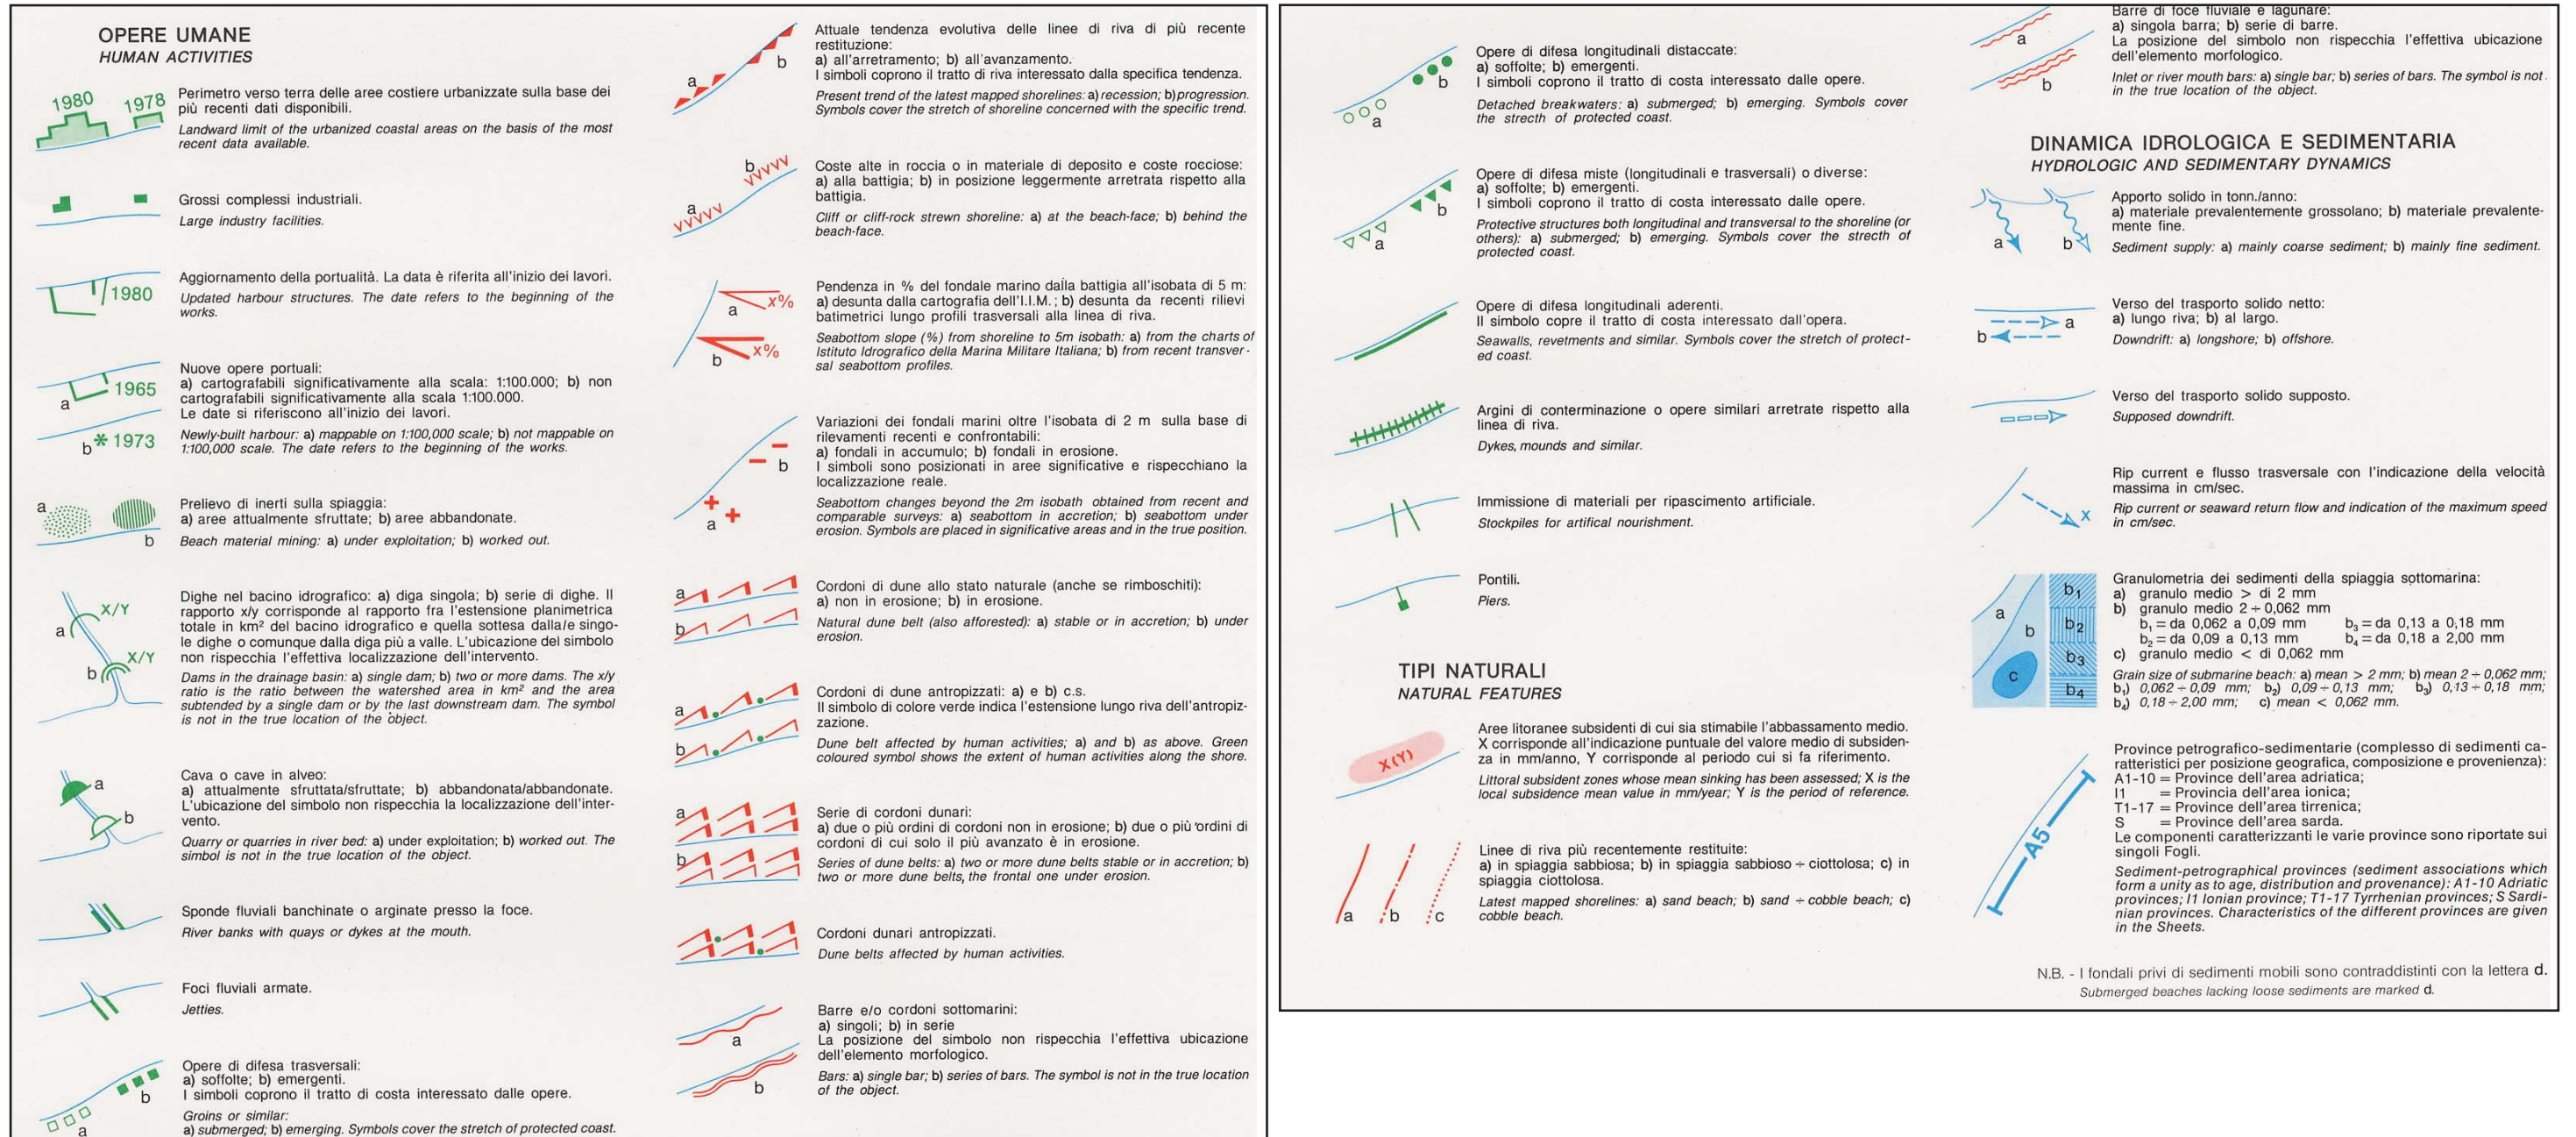 OPERE UMANE
HUMAN ACTIVITIES
1980
1978
Perimetro verso terra delle aree costiere urbanizzate sulla base dei
più recenti dati disponibili.
Landward limit of the urbanized coastal areas on the basis of the most
recent data available.
Grossi complessi industriali.
Large industry facilities.
1980
Aggiornamento della portualità. La data è riferita all'inizio dei lavori.
Updated harbour structures. The date refers to the beginning of the
works.
a
1965
b * 1973
Nuove opere portuali:
a) cartografabili significativamente alla scala: 1:100.000; b) non
cartografabili significativamente alla scala 1:100.000.
Le date si riferiscono all'inizio dei lavori.
Newly-built harbour: a) mappable on 1:100,000 scale; b) not mappable on
1:100,000 scale. The date refers to the beginning of the works.
a
b
Prelievo di inerti sulla spiaggia:
a) aree attualmente sfruttate; b) aree abbandonate.
Beach material mining: a) under exploitation; b) worked out.
X/Y
a
X/Y
b
Dighe nel bacino idrografico: a) diga singola; b) serie di dighe. Il
rapporto x/y corrisponde al rapporto fra l'estensione planimetrica
totale in km² del bacino idrografico e quella sottesa dalla/e singo-
le dighe o comunque dalla diga più a valle. L'ubicazione del simbolo
non rispecchia l'effettiva localizzazione dell'intervento.
Dams in the drainage basin: a) single dam; b) two or more dams. The x/y
ratio is the ratio between the watershed area in km² and the area
subtended by a single dam or by the last downstream dam. The symbol
is not in the true location of the object.
a
b
Cava o cave in alveo:
a) attualmente sfruttata/sfruttate; b) abbandonata/abbandonate.
L'ubicazione del simbolo non rispecchia la localizzazione dell'inter-
vento.
Quarry or quarries in river bed: a) under exploitation; b) worked out. The
simbol is not in the true location of the object.
Sponde fluviali banchinate o arginate presso la foce.
River banks with quays or dykes at the mouth.
Foci fluviali armate.
Jetties.
b
a
Opere di difesa trasversali:
a) soffolte; b) emergenti.
I simboli coprono il tratto di costa interessato dalle opere.
Groins or similar:
a) submerged; b) emerging. Symbols cover the stretch of protected coast.
a
b
Attuale tendenza evolutiva delle linee di riva di più recente
restituzione:
a) all'arretramento; b) all'avanzamento.
I simboli coprono il tratto di riva interessato dalla specifica tendenza.
Present trend of the latest mapped shorelines: a) recession; b) progression.
Symbols cover the stretch of shoreline concerned with the specific trend.
b
a
Coste alte in roccia o in materiale di deposito e coste rocciose:
a) alla battigia; b) in posizione leggermente arretrata rispetto alla
battigia.
Cliff or cliff-rock strewn shoreline: a) at the beach-face; b) behind the
beach-face.
x%
a
x%
b
Pendenza in % del fondale marino dalla battigia all'isobata di 5 m:
a) desunta dalla cartografia dell'I.I.M.; b) desunta da recenti rilievi
batimetrici lungo profili trasversali alla linea di riva.
Seabottom slope (%) from shoreline to 5m isobath: a) from the charts of
Istituto Idrografico della Marina Militare Italiana; b) from recent transver-
sal seabottom profiles.
b
a
Variazioni dei fondali marini oltre l'isobata di 2 m sulla base di
rilevamenti recenti e confrontabili:
a) fondali in accumulo; b) fondali in erosione.
I simboli sono posizionati in aree significative e rispecchiano la
localizzazione reale.
Seabottom changes beyond the 2m isobath obtained from recent and
comparable surveys: a) seabottom in accretion; b) seabottom under
erosion. Symbols are placed in significative areas and in the true position.
a
b
Cordoni di dune allo stato naturale (anche se rimboschiti):
a) non in erosione; b) in erosione.
Natural dune belt (also afforested): a) stable or in accretion; b) under
erosion.
a
b
Cordoni di dune antropizzati: a) e b) c.s.
Il simbolo di colore verde indica l'estensione lungo riva dell'antropiz-
zazione.
Dune belt affected by human activities; a) and b) as above. Green
coloured symbol shows the extent of human activities along the shore.
a
b
Serie di cordoni dunari:
a) due o più ordini di cordoni non in erosione; b) due o più ordini di
cordoni di cui solo il più avanzato è in erosione.
Series of dune belts: a) two or more dune belts stable or in accretion; b)
two or more dune belts, the frontal one under erosion.
Cordoni dunari antropizzati.
Dune belts affected by human activities.
a
b
Barre e/o cordoni sottomarini:
a) singoli; b) in serie
La posizione del simbolo non rispecchia l'effettiva ubicazione
dell'elemento morfologico.
Bars: a) single bar; b) series of bars. The symbol is not in the true location
of the object.
b
a
Opere di difesa longitudinali distaccate:
a) soffolte; b) emergenti.
I simboli coprono il tratto di costa interessato dalle opere.
Detached breakwaters: a) submerged; b) emerging. Symbols cover
the strecth of protected coast.
b
a
Opere di difesa miste (longitudinali e trasversali) o diverse:
a) soffolte; b) emergenti.
I simboli coprono il tratto di costa interessato dalle opere.
Protective structures both longitudinal and transversal to the shoreline (or
others): a) submerged; b) emerging. Symbols cover the strecth of
protected coast.
Opere di difesa longitudinali aderenti.
Il simbolo copre il tratto di costa interessato dall'opera.
Seawalls, revetments and similar. Symbols cover the stretch of protect-
ed coast.
Argini di conterminazione o opere similari arretrate rispetto alla
linea di riva.
Dykes, mounds and similar.
Immissione di materiali per ripascimento artificiale.
Stockpiles for artifical nourishment.
Pontili.
Piers.
TIPI NATURALI
NATURAL FEATURES
X(Y)
Aree litoranee subsidenti di cui sia stimabile l'abbassamento medio.
X corrisponde all'indicazione puntuale del valore medio di subsiden-
za in mm/anno, Y corrisponde al periodo cui si fa riferimento.
Littoral subsident zones whose mean sinking has been assessed; X is the
local subsidence mean value in mm/year; Y is the period of reference.
a b c
Linee di riva più recentemente restituite:
a) in spiaggia sabbiosa; b) in spiaggia sabbioso ÷ ciottolosa; c) in
spiaggia ciottolosa.
Latest mapped shorelines: a) sand beach; b) sand ÷ cobble beach; c)
cobble beach.
a
b
Barre di foce fluviale e lagunare:
a) singola barra; b) serie di barre.
La posizione del simbolo non rispecchia l'effettiva ubicazione
dell'elemento morfologico.
Inlet or river mouth bars: a) single bar; b) series of bars. The symbol is not
in the true location of the object.
DINAMICA IDROLOGICA E SEDIMENTARIA
HYDROLOGIC AND SEDIMENTARY DYNAMICS
a b
Apporto solido in tonn./anno:
a) materiale prevalentemente grossolano; b) materiale prevalente-
mente fine.
Sediment supply: a) mainly coarse sediment; b) mainly fine sediment.
a
b
Verso del trasporto solido netto:
a) lungo riva; b) al largo.
Downdrift: a) longshore; b) offshore.
Verso del trasporto solido supposto.
Supposed downdrift.
X
Rip current e flusso trasversale con l'indicazione della velocità
massima in cm/sec.
Rip current or seaward return flow and indication of the maximum speed
in cm/sec.
a
b
c
b₁
b₂
b₃
b₄
Granulometria dei sedimenti della spiaggia sottomarina:
a) granulo medio > di 2 mm
b) granulo medio 2 ÷ 0,062 mm
b₁ = da 0,062 a 0,09 mm b₃ = da 0,13 a 0,18 mm
b₂ = da 0,09 a 0,13 mm b₄ = da 0,18 a 2,00 mm
c) granulo medio < di 0,062 mm
Grain size of submarine beach: a) mean > 2 mm; b) mean 2 ÷ 0,062 mm;
b₁) 0,062 ÷ 0,09 mm; b₂) 0,09 ÷ 0,13 mm; b₃) 0,13 ÷ 0,18 mm;
b₄) 0,18 ÷ 2,00 mm; c) mean < 0,062 mm.
A5
Province petrografico-sedimentarie (complesso di sedimenti ca-
ratteristici per posizione geografica, composizione e provenienza):
A1-10 = Province dell'area adriatica;
I1 = Provincia dell'area ionica;
T1-17 = Province dell'area tirrenica;
S = Province dell'area sarda.
Le componenti caratterizzanti le varie province sono riportate sui
singoli Fogli.
Sediment-petrographical provinces (sediment associations which
form a unity as to age, distribution and provenance): A1-10 Adriatic
provinces; I1 Ionian province; T1-17 Tyrrhenian provinces; S Sardi-
nian provinces. Characteristics of the different provinces are given
in the Sheets.
N.B. - I fondali privi di sedimenti mobili sono contraddistinti con la lettera d.
Submerged beaches lacking loose sediments are marked d.